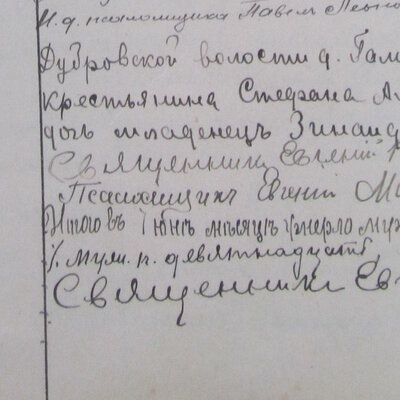 И. д. псаломщика Павел
Дубровской волости д. Гал
крестьянина Стефана А
дочь младенец Зинаид
Священник Евгений
Псаломщик Евгений Ма
Итого въ Iюнѣ мѣсяцѣ умерло муж
девятнадцать
Священник Ев